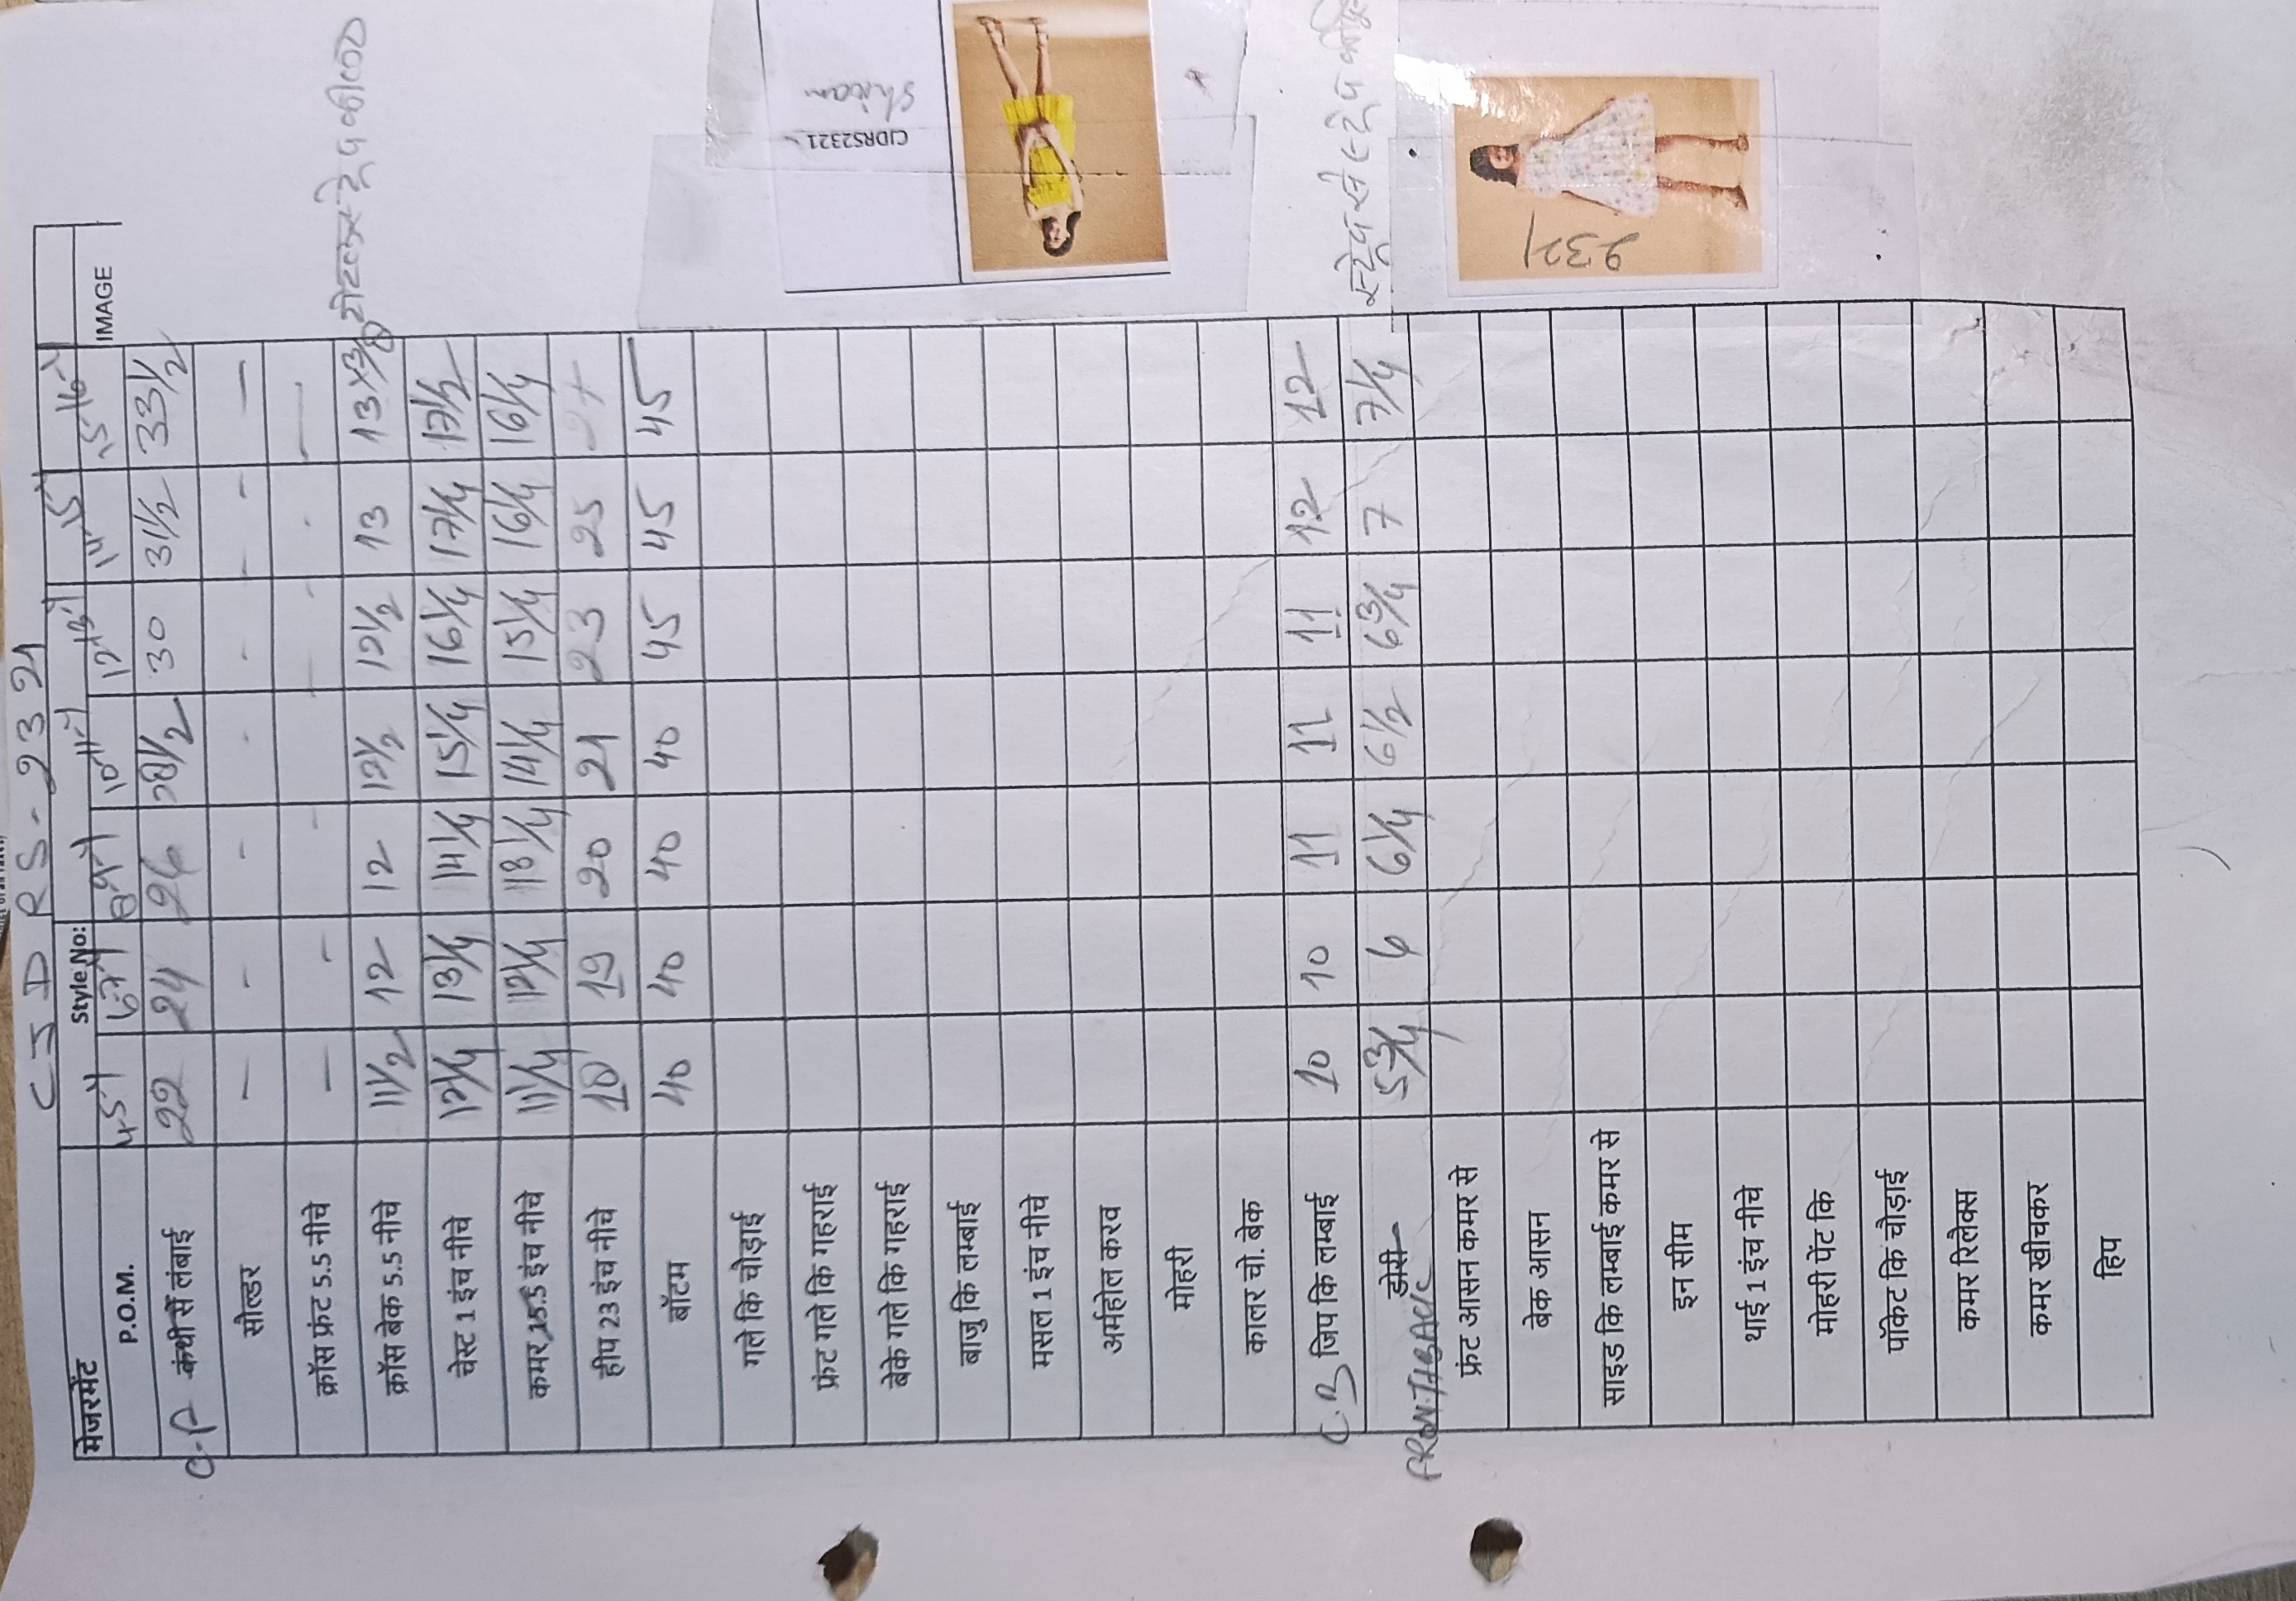 CJDRS-2321
मेजरमेंट Style No:
P.O.M. 4-5Y 6-7Y 8-9Y 10-11Y 12-13Y 14-15Y 15-16Y IMAGE
C.F कंधी सें लंबाई 22 24 26 28 1/2 30 31 1/2 33 1/2
सोल्डर - - - - - - -
क्रॉस फ्रंट 5.5 नीचे - - - - - - -
क्रॉस बेक 5.5 नीचे 11 1/2 12 12 12 1/2 12 1/2 13 13 x 3/8
चेस्ट 1 इंच नीचे 12 1/4 13 1/4 14 1/4 15 1/4 16 1/4 17 1/4 17 1/2
कमर 15.5 इंच नीचे 11 1/4 12 1/4 13 1/4 14 1/4 15 1/4 16 1/4 16 1/4
हीप 23 इंच नीचे 18 19 20 21 23 25 27
बॉटम 40 40 40 40 45 45 45
गले कि चौड़ाई
फ्रंट गले कि गहराई
बेके गले कि गहराई
बाजु कि लम्बाई
मसल 1 इंच नीचे
अर्महोल करव
मोहरी
कालर चो. बेक
C.B जिप कि लम्बाई 10 10 11 11 11 12 12
डोरी 5 3/4 6 6 1/4 6 1/2 6 3/4 7 7 1/4
फ्रंट आसन कमर से
बेक आसन
साइड कि लम्बाई कमर से
इन सीम
थाई 1 इंच नीचे
मोहरी पेंट कि
पॉकेट कि चौड़ाई
कमर रिलैक्स
कमर खीचकर
हिप
CJDRS2321
Shivam
स्ट्रेप से स्ट्रेप
2321